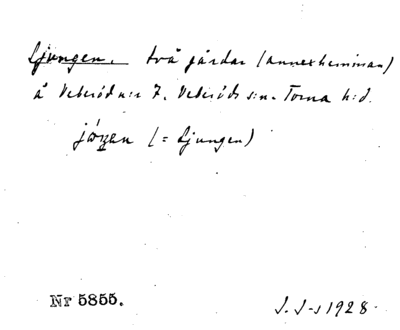 Ljungen. två gårdar (annexhemman)
å Veberöd n:r 7. Veberöds s:n. Torna h:d.
(= Ljungen)
Nr 5855.
J. J-s 1928.